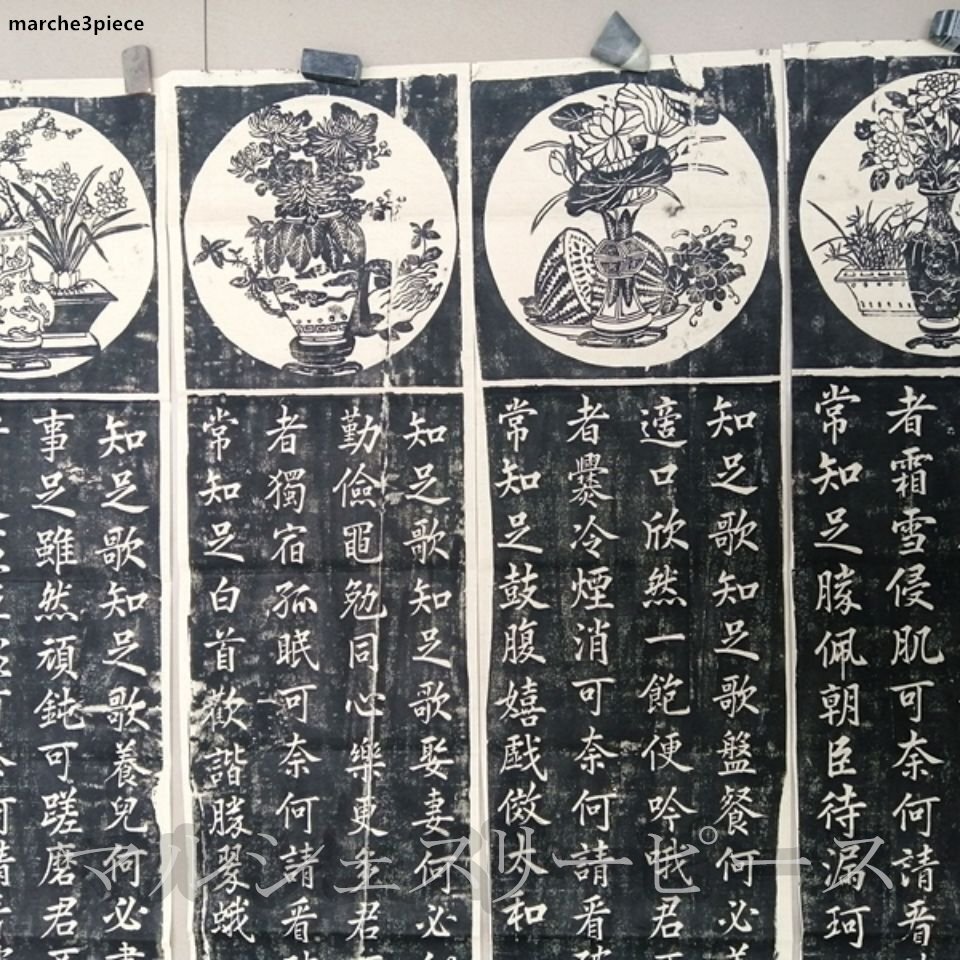 marche3piece
者霜雪侵肌可奈何請看
常知足勝佩朝臣待漏珂
知足歌知足歌盤餐何必
適口欣然一飽便吟哦君
者爨冷煙消可奈何請看
常知足鼓腹嬉戲俲太和
知足歌知足歌娶妻何必
勤儉黽勉同心樂更多君
者獨宿孤眠可奈何請看
常知足白首歡諧勝翠蛾
知足歌知足歌養兒何必
事足雖然頑鈍可蹉磨君
マルシェスリーピース